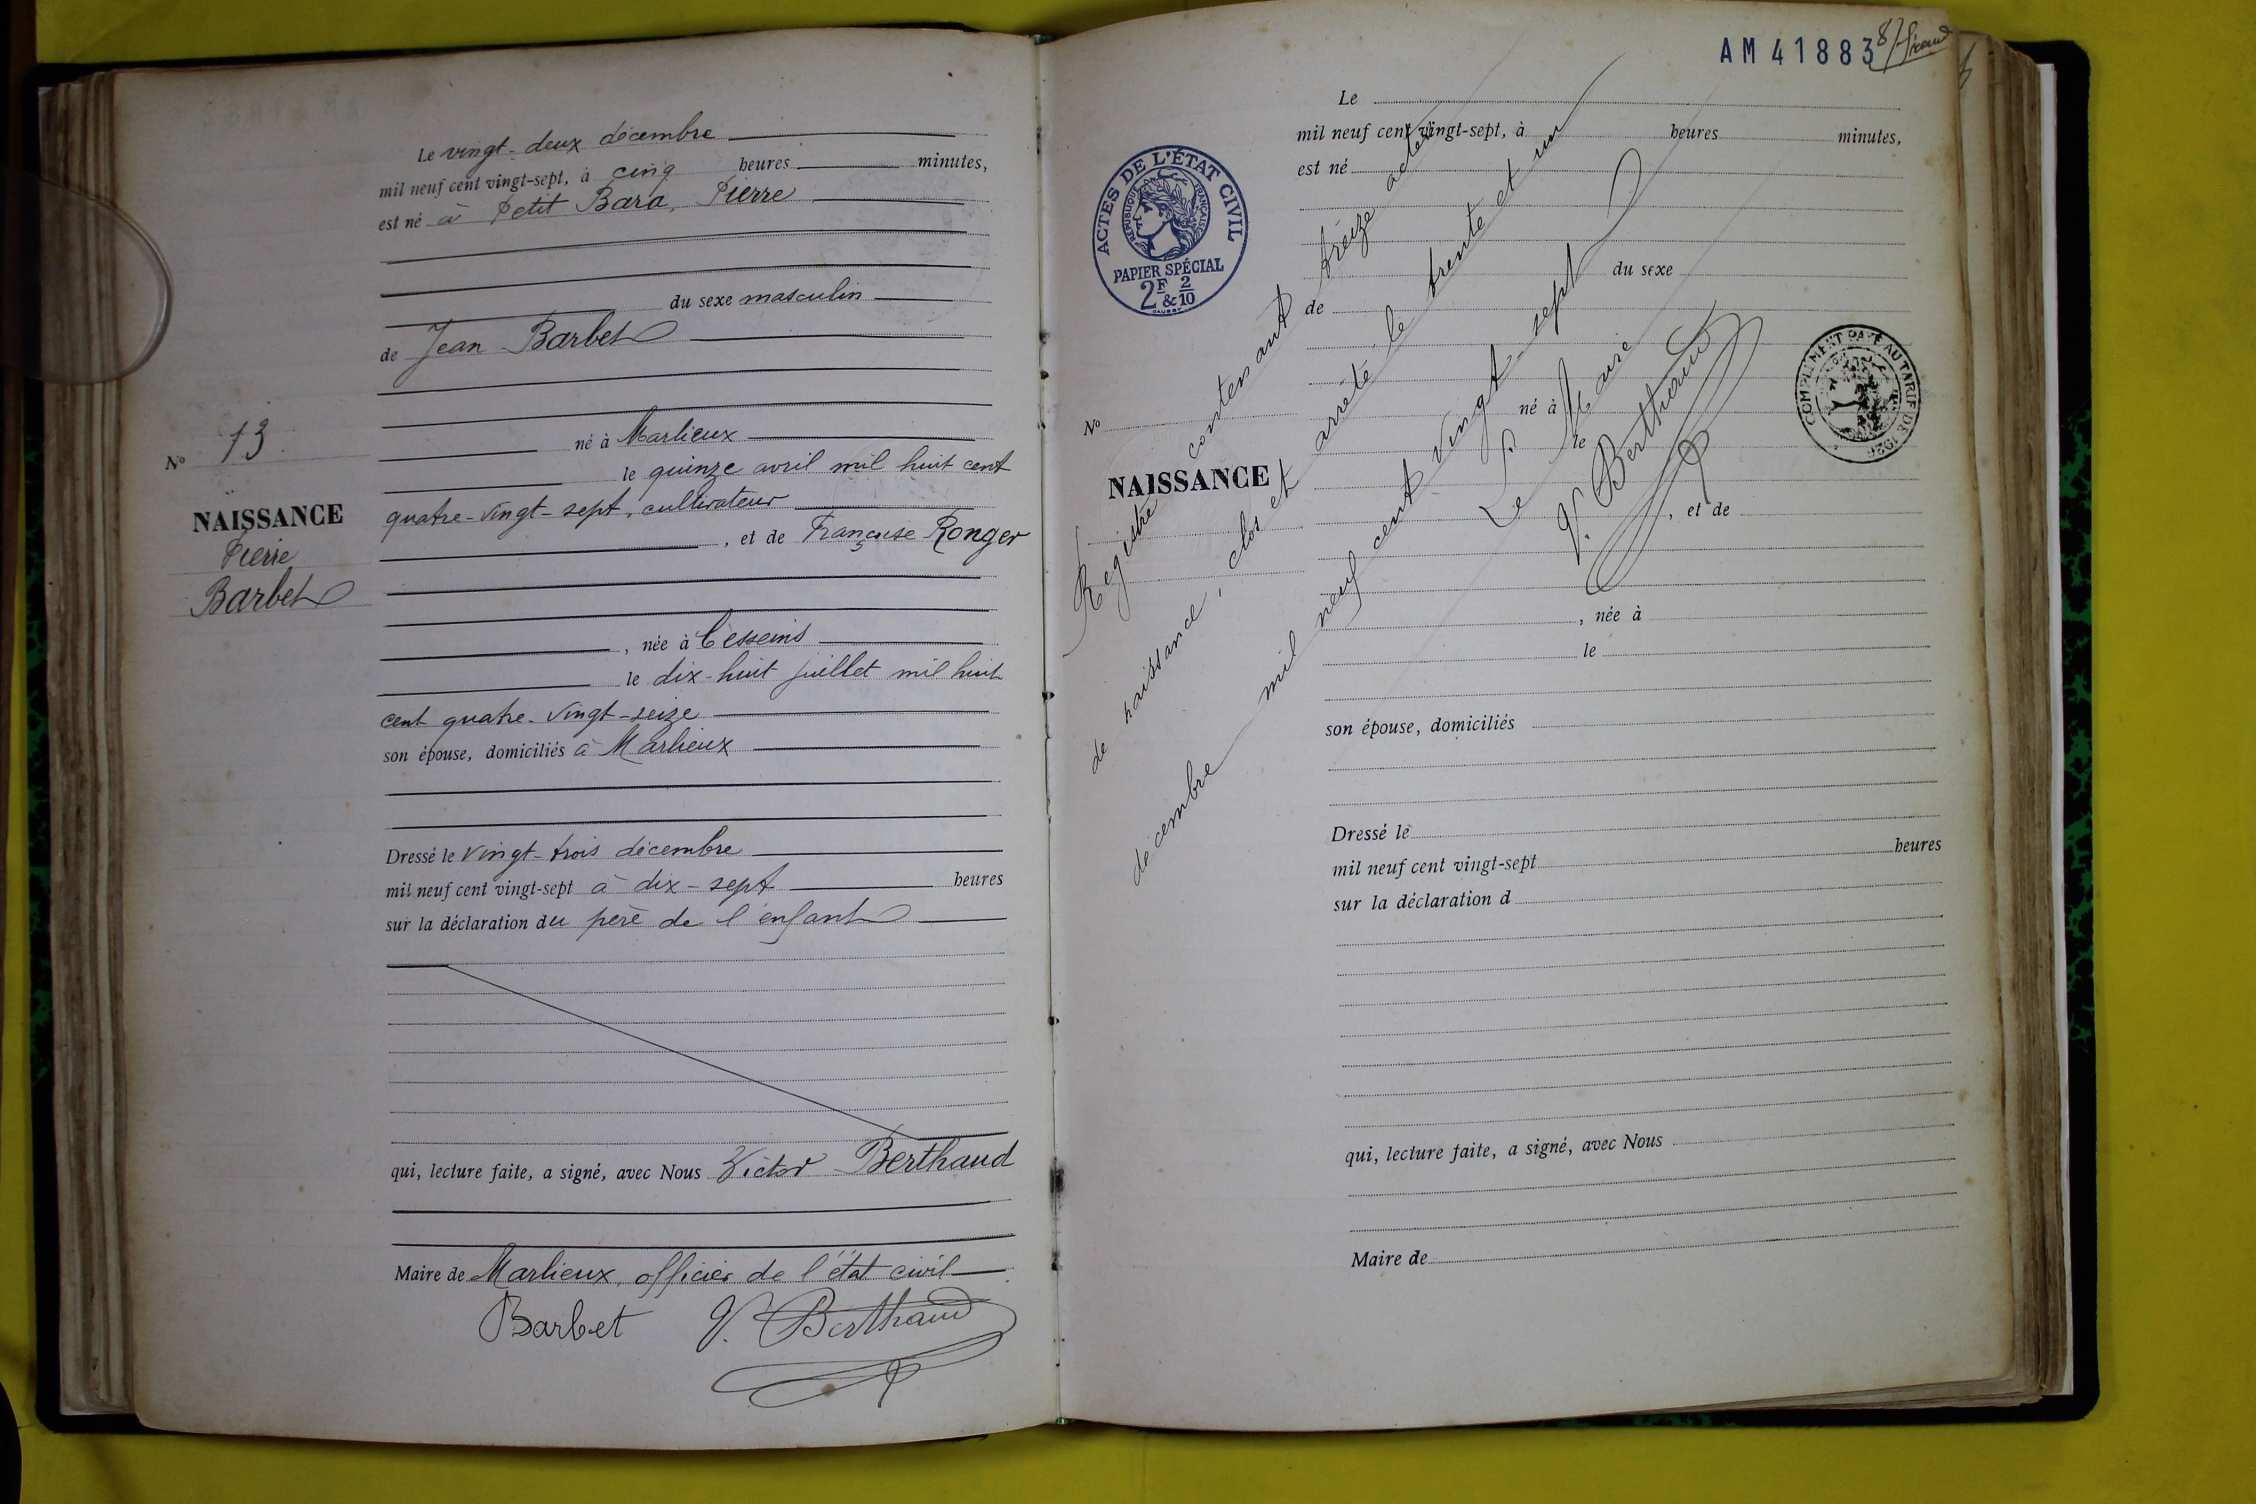 Le vingt-deux décembre
mil neuf cent vingt-sept, à cinq heures minutes,
est né à Petit Bara, Pierre
du sexe masculin
de Jean Barbet
né à Marlieux
le quinze avril mil huit cent
quatre-vingt-sept, cultivateur
, et de Françoise Ronger
, née à Cesseins
le dix-huit juillet mil huit
cent quatre-vingt-seize
son épouse, domiciliés à Marlieux
Dressé le vingt-trois décembre
mil neuf cent vingt-sept à dix-sept heures
sur la déclaration du père de l'enfant
qui, lecture faite, a signé, avec Nous Victor Berthaud
Maire de Marlieux, officier de l'état civil
Barbet V. Berthaud
No 13
NAISSANCE
Pierre
Barbet
AM 41883
ACTES DE L'ÉTAT CIVIL
RÉPUBLIQUE FRANÇAISE
PAPIER SPÉCIAL
2F & 2/10
Le
mil neuf cent vingt-sept, à heures minutes,
est né
du sexe
de
né à
le
, et de
, née à
le
son épouse, domiciliés
Dressé le
mil neuf cent vingt-sept heures
sur la déclaration d
qui, lecture faite, a signé, avec Nous
Maire de
No
NAISSANCE
COMPLÉMENT PAYÉ AU TARIF DE 1926
Registre contenant treize actes
de naissance, clos et arrêté le trente et un
décembre mil neuf cent vingt-sept
Le Maire
V. Berthaud